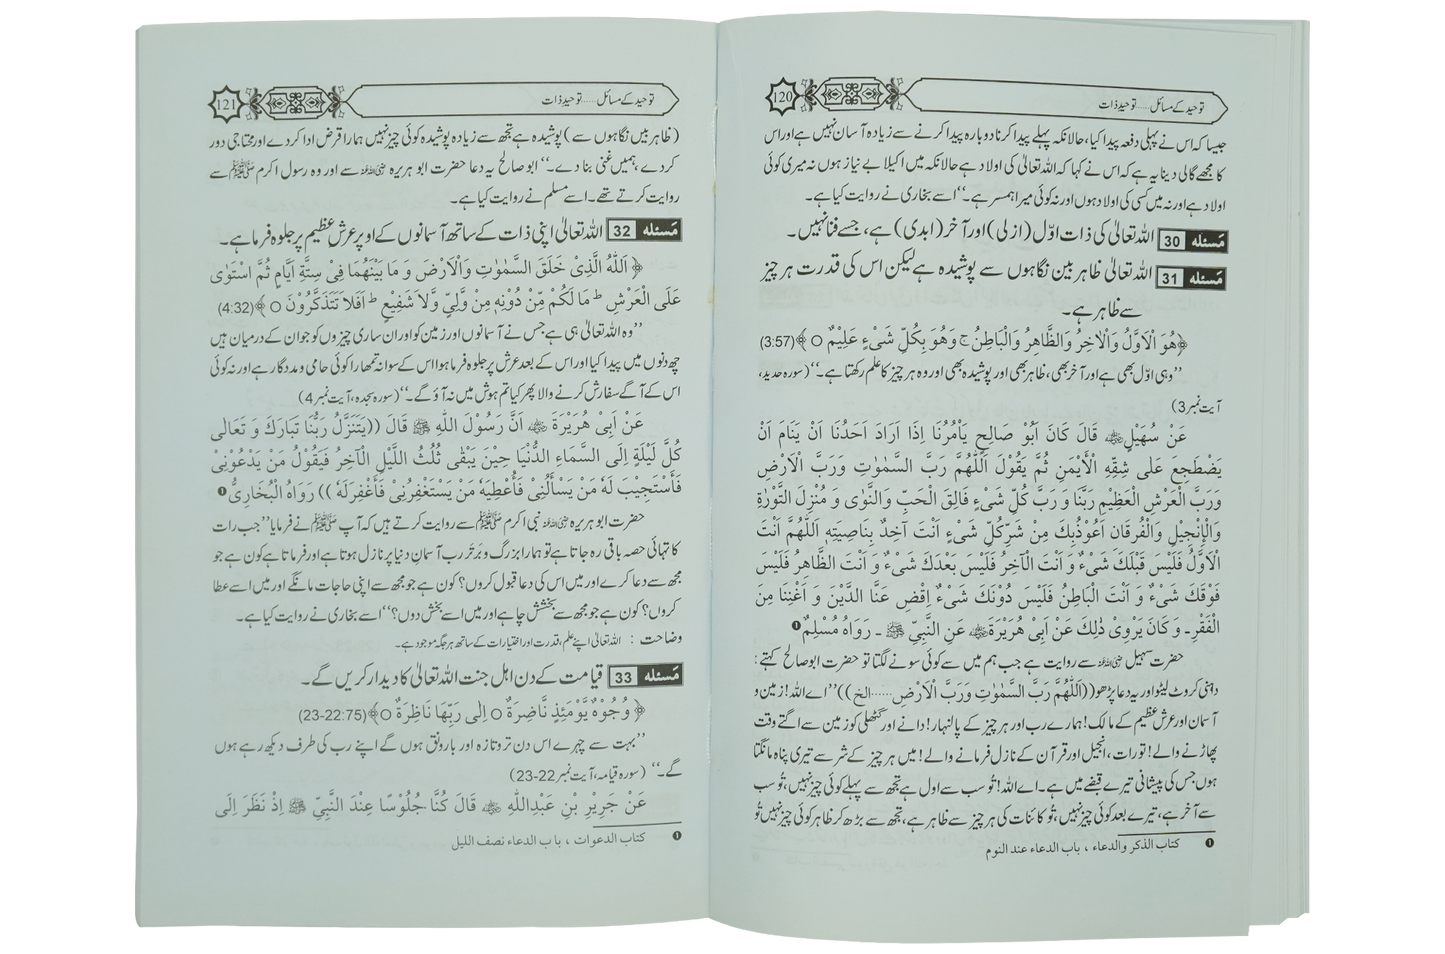 120
توحید کے مسائل.....توحید ذات
جیسا کہ اس نے پہلی دفعہ پیدا کیا، حالانکہ پہلے پیدا کرنا دوبارہ پیدا کرنے سے زیادہ آسان نہیں ہے اور اس
کا مجھے گالی دینا یہ ہے کہ اس نے کہا کہ اللہ تعالیٰ کی اولاد ہے حالانکہ میں اکیلا بے نیاز ہوں نہ میری کوئی
اولاد ہے اور نہ میں کسی کی اولاد ہوں اور نہ کوئی میرا ہمسر ہے۔‘‘ اسے بخاری نے روایت کیا ہے۔
مَسئله 30 اللہ تعالیٰ کی ذات اوّل (ازلی) اور آخر (ابدی) ہے، جسے فنا نہیں۔
مَسئله 31 اللہ تعالیٰ ظاہر بین نگاہوں سے پوشیدہ ہے لیکن اس کی قدرت ہر چیز
سے ظاہر ہے۔
﴿هُوَ الْاَوَّلُ وَالْاٰخِرُ وَالظَّاهِرُ وَالْبَاطِنُ ج وَهُوَ بِكُلِّ شَىْءٍ عَلِيْمٌ ○ ﴾(3:57)
’’وہی اوّل بھی ہے اور آخر بھی، ظاہر بھی اور پوشیدہ بھی اور وہ ہر چیز کا علم رکھتا ہے۔‘‘ (سورہ حدید،
آیت نمبر 3)
عَنْ سُهَيْلٍ ؓ قَالَ كَانَ اَبُوْ صَالِحٍ يَأْمُرُنَا اِذَا اَرَادَ اَحَدُنَا اَنْ يَنَامَ اَنْ
يَضْطَجِعَ عَلٰى شِقِّهِ الْأَيْمَنِ ثُمَّ يَقُوْلَ اَللّٰهُمَّ رَبَّ السَّمٰوٰتِ وَرَبَّ الْاَرْضِ
وَرَبَّ الْعَرْشِ الْعَظِيْمِ رَبَّنَا وَ رَبَّ كُلِّ شَىْءٍ فَالِقَ الْحَبِّ وَالنَّوٰى وَ مُنْزِلَ التَّوْرٰةِ
وَالْإِنْجِيْلِ وَالْفُرْقَانِ اَعُوْذُبِكَ مِنْ شَرِّكُلِّ شَىْءٍ اَنْتَ آخِذٌ بِنَاصِيَتِهِ اَللّٰهُمَّ اَنْتَ
الْاَوَّلُ فَلَيْسَ قَبْلَكَ شَىْءٌ وَ اَنْتَ الْآخِرُ فَلَيْسَ بَعْدَكَ شَىْءٌ وَ اَنْتَ الظَّاهِرُ فَلَيْسَ
فَوْقَكَ شَىْءٌ وَ اَنْتَ الْبَاطِنُ فَلَيْسَ دُوْنَكَ شَىْءٌ اِقْضِ عَنَّا الدَّيْنَ وَ اَغْنِنَا مِنَ
الْفَقْرِ۔ وَ كَانَ يَرْوِىْ ذٰلِكَ عَنْ اَبِىْ هُرَيْرَةَ ؓ عَنِ النَّبِيِّ ﷺ ۔ رَوَاهُ مُسْلِمٌ ❶
حضرت سہیل ؓ سے روایت ہے جب ہم میں سے کوئی سونے لگتا تو حضرت ابو صالح کہتے :
داہنی کروٹ لیٹو اور یہ دعا پڑھو ((اَللّٰهُمَّ رَبَّ السَّمٰوٰتِ وَرَبَّ الْاَرْضِ......الخ))’’اے اللہ! زمین و
آسمان اور عرش عظیم کے مالک! ہمارے رب اور ہر چیز کے پالنہار! دانے اور گٹھلی کو زمین سے اگتے وقت
پھاڑنے والے! تورات، انجیل اور قرآن کے نازل فرمانے والے! میں ہر چیز کے شر سے تیری پناہ مانگتا
ہوں جس کی پیشانی تیرے قبضے میں ہے۔ اے اللہ! تُو سب سے اول ہے تجھ سے پہلے کوئی چیز نہیں، تُو سب
سے آخر ہے، تیرے بعد کوئی چیز نہیں، تُو کائنات کی ہر چیز سے ظاہر ہے، تجھ سے بڑھ کر ظاہر کوئی چیز نہیں تُو
❶ كتاب الذكر والدعاء ، باب الدعاء عند النوم
121
توحید کے مسائل.....توحید ذات
(ظاہر بیں نگاہوں سے) پوشیدہ ہے تجھ سے زیادہ پوشیدہ کوئی چیز نہیں ہمارا قرض ادا کر دے اور محتاجی دور
کر دے، ہمیں غنی بنا دے۔‘‘ ابو صالح یہ دعا حضرت ابو ہریرہ ؓ سے اور وہ رسول اکرم ﷺ سے
روایت کرتے تھے۔ اسے مسلم نے روایت کیا ہے۔
مَسئله 32 اللہ تعالیٰ اپنی ذات کے ساتھ آسمانوں کے اوپر عرش عظیم پر جلوہ فرما ہے۔
﴿ اَللّٰهُ الَّذِىْ خَلَقَ السَّمٰوٰتِ وَالْاَرْضَ وَ مَا بَيْنَهُمَا فِىْ سِتَّةِ اَيَّامٍ ثُمَّ اسْتَوٰى
عَلَى الْعَرْشِ ط مَا لَكُمْ مِّنْ دُوْنِهٖ مِنْ وَّلِىٍّ وَّلَا شَفِيْعٍ ط اَفَلَا تَتَذَكَّرُوْنَ ○ ﴾(4:32)
’’وہ اللہ تعالیٰ ہی ہے جس نے آسمانوں اور زمین کو اور ان ساری چیزوں کو جو ان کے درمیان ہیں
چھ دنوں میں پیدا کیا اور اس کے بعد عرش پر جلوہ فرما ہوا اس کے سوا نہ تمھارا کوئی حامی و مددگار ہے اور نہ کوئی
اس کے آگے سفارش کرنے والا پھر کیا تم ہوش میں نہ آؤ گے۔‘‘ (سورہ سجدہ، آیت نمبر 4)
عَنْ اَبِىْ هُرَيْرَةَ ؓ اَنَّ رَسُوْلَ اللّٰهِ ﷺ قَالَ ((يَتَنَزَّلُ رَبُّنَا تَبَارَكَ وَ تَعَالٰى
كُلَّ لَيْلَةٍ اِلَى السَّمَاءِ الدُّنْيَا حِيْنَ يَبْقٰى ثُلُثُ اللَّيْلِ الْآخِرُ فَيَقُوْلُ مَنْ يَدْعُوْنِىْ
فَأَسْتَجِيْبَ لَهُ مَنْ يَسْأَلُنِىْ فَأُعْطِيَهُ مَنْ يَسْتَغْفِرُنِىْ فَأَغْفِرَلَهُ )) رَوَاهُ الْبُخَارِىُّ ❶
حضرت ابو ہریرہ ؓ نبی اکرم ﷺ سے روایت کرتے ہیں کہ آپ ﷺ نے فرمایا ’’جب رات
کا تہائی حصہ باقی رہ جاتا ہے تو ہمارا بزرگ و برتر رب آسمان دنیا پر نازل ہوتا ہے اور فرماتا ہے کون ہے جو
مجھ سے دعا کرے اور میں اس کی دعا قبول کروں؟ کون ہے جو مجھ سے اپنی حاجات مانگے اور میں اسے عطا
کروں؟ کون ہے جو مجھ سے بخشش چاہے اور میں اسے بخش دوں؟‘‘ اسے بخاری نے روایت کیا ہے۔
وضاحت : اللہ تعالیٰ اپنے علم، قدرت اور اختیارات کے ساتھ ہر جگہ موجود ہے۔
مَسئله 33 قیامت کے دن اہل جنت اللہ تعالیٰ کا دیدار کریں گے۔
﴿ وُجُوْهٌ يَّوْمَئِذٍ نَّاضِرَةٌ ○ اِلٰى رَبِّهَا نَاظِرَةٌ ○﴾(23-22:75)
’’بہت سے چہرے اس دن تر و تازہ اور بارونق ہوں گے اپنے رب کی طرف دیکھ رہے ہوں
گے۔‘‘ (سورہ قیامہ، آیت نمبر 22-23)
عَنْ جَرِيْرِ بْنِ عَبْدِاللّٰهِ ؓ قَالَ كُنَّا جُلُوْسًا عِنْدَ النَّبِيِّ ﷺ اِذْ نَظَرَ اِلَى
❶ كتاب الدعوات ، باب الدعاء نصف الليل